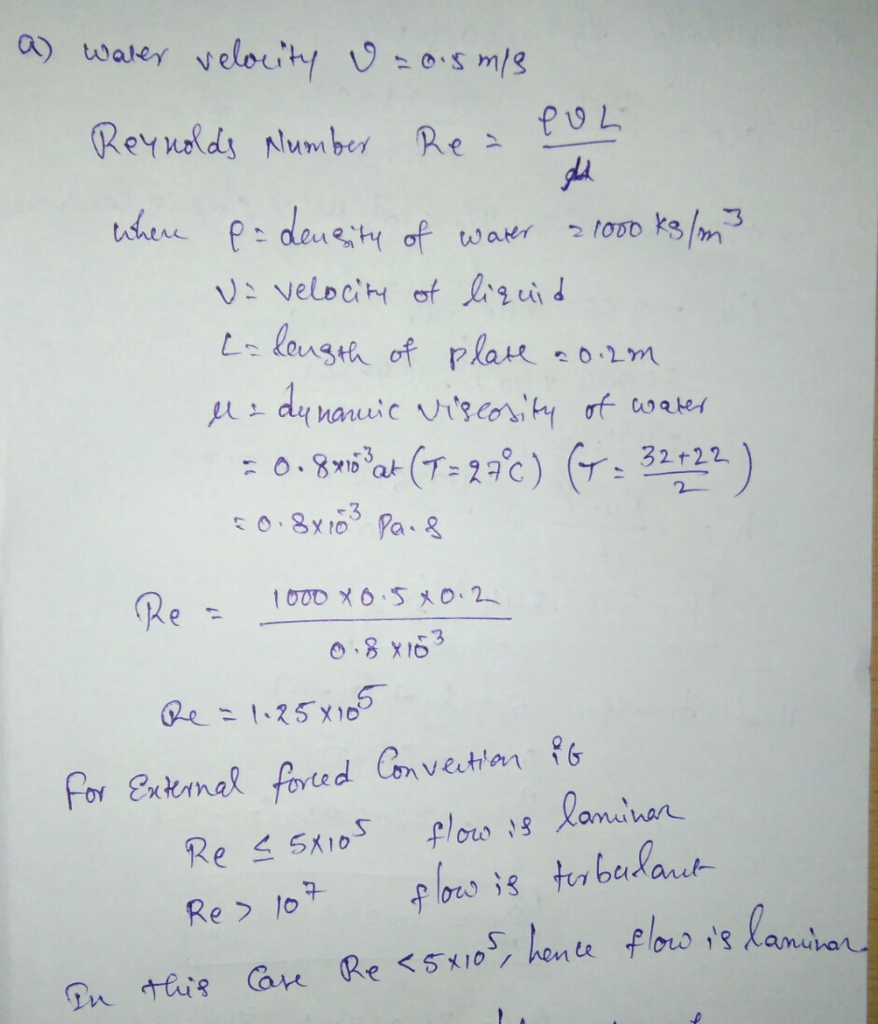 a) water velocity v = 0.5 m/s
Reynolds Number Re = ρvL / μ
where ρ = density of water = 1000 kg/m³
v = velocity of liquid
L = length of plate = 0.2m
μ = dynamic viscosity of water
= 0.8x10⁻³ at (T = 27°C) (T = (32+22)/2)
= 0.8x10⁻³ Pa.s
Re = (1000 x 0.5 x 0.2) / (0.8 x10⁻³)
Re = 1.25 x10⁵
for External forced Convection if
Re ≤ 5x10⁵ flow is laminar
Re > 10⁷ flow is turbulant
In this Case Re < 5x10⁵, hence flow is laminar.